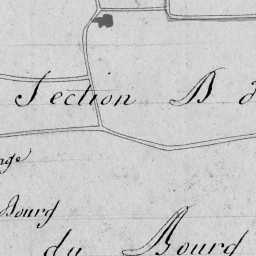 Section B d
nge
Bourg
du Bourg